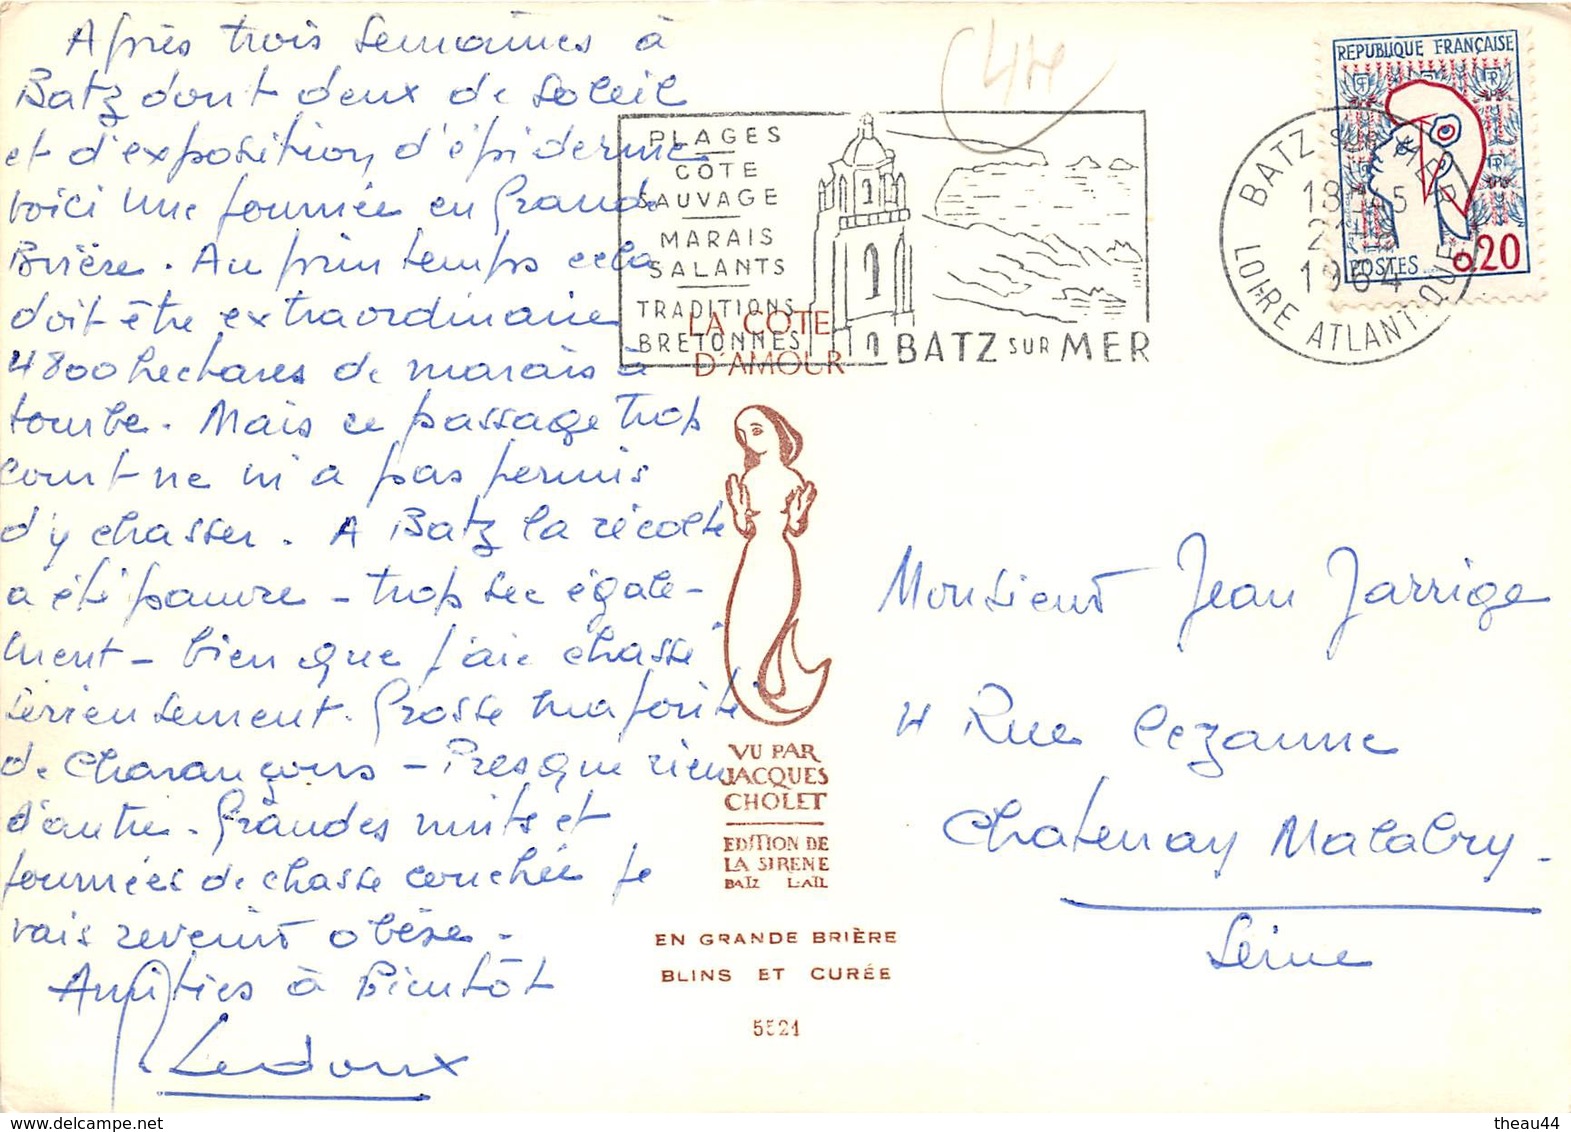 Après trois semaines à
Batz dont deux de soleil
et d'exposition d'épiderme
voici une journée en Grande
Brière. Au printemps cela
doit être extraordinaire
4800 hectares de marais à
tourbe. Mais ce passage trop
court ne m'a pas permis
d'y chasser. A Batz la récolte
a été pauvre - trop sec égale-
ment - bien que j'aie chassé
sérieusement. Grosse majorité
de Charançons - Presque rien
d'autre. Grandes nuits et
journées de chasse couchée je
vais revenir obèse -
Amitiés à Bientôt
Ledoux
PLAGES
COTE
SAUVAGE
MARAIS
SALANTS
TRADITIONS
BRETONNES
BATZ SUR MER
LA COTE
D'AMOUR
VU PAR
JACQUES
CHOLET
EDITION DE
LA SIRENE
BATZ L-ATL
EN GRANDE BRIÈRE
BLINS ET CURÉE
5521
REPUBLIQUE FRANÇAISE
POSTES 0,20
BATZ SUR MER
1964
LOIRE ATLANTIQUE
Monsieur Jean Jarrige
4 Rue Cezanne
Chatenay Malabry -
Seine
theau44